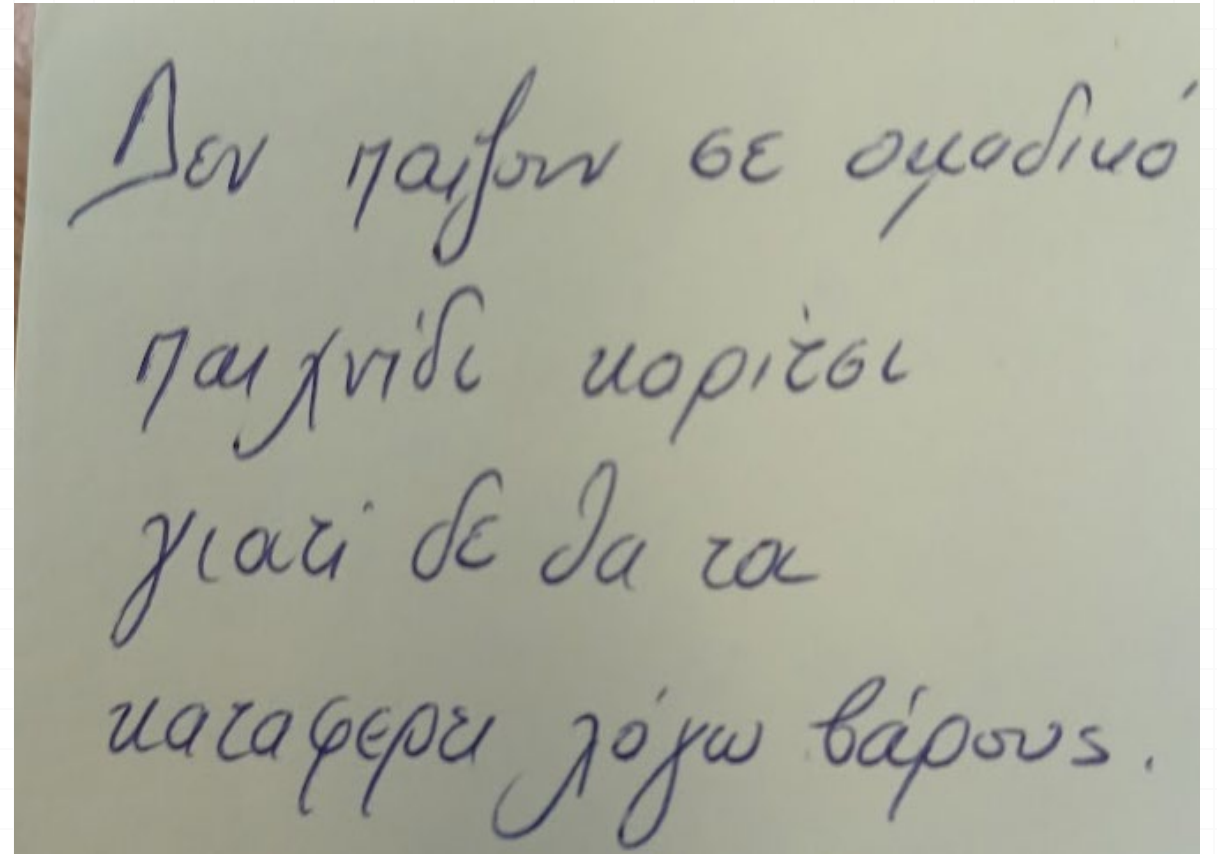 Δεν παίζουν σε ομαδικό
παιχνίδι κορίτσι
γιατί δε θα τα
καταφερει λόγω βάρους.